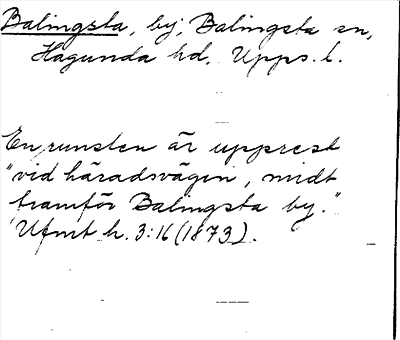 Balingsta, by, Balingsta sn,
Hagunda hd, Upps. l.
En runsten är upprest
"vid häradsvägen, midt
framför Balingsta by."
Ufmt h. 3:16 (1873).